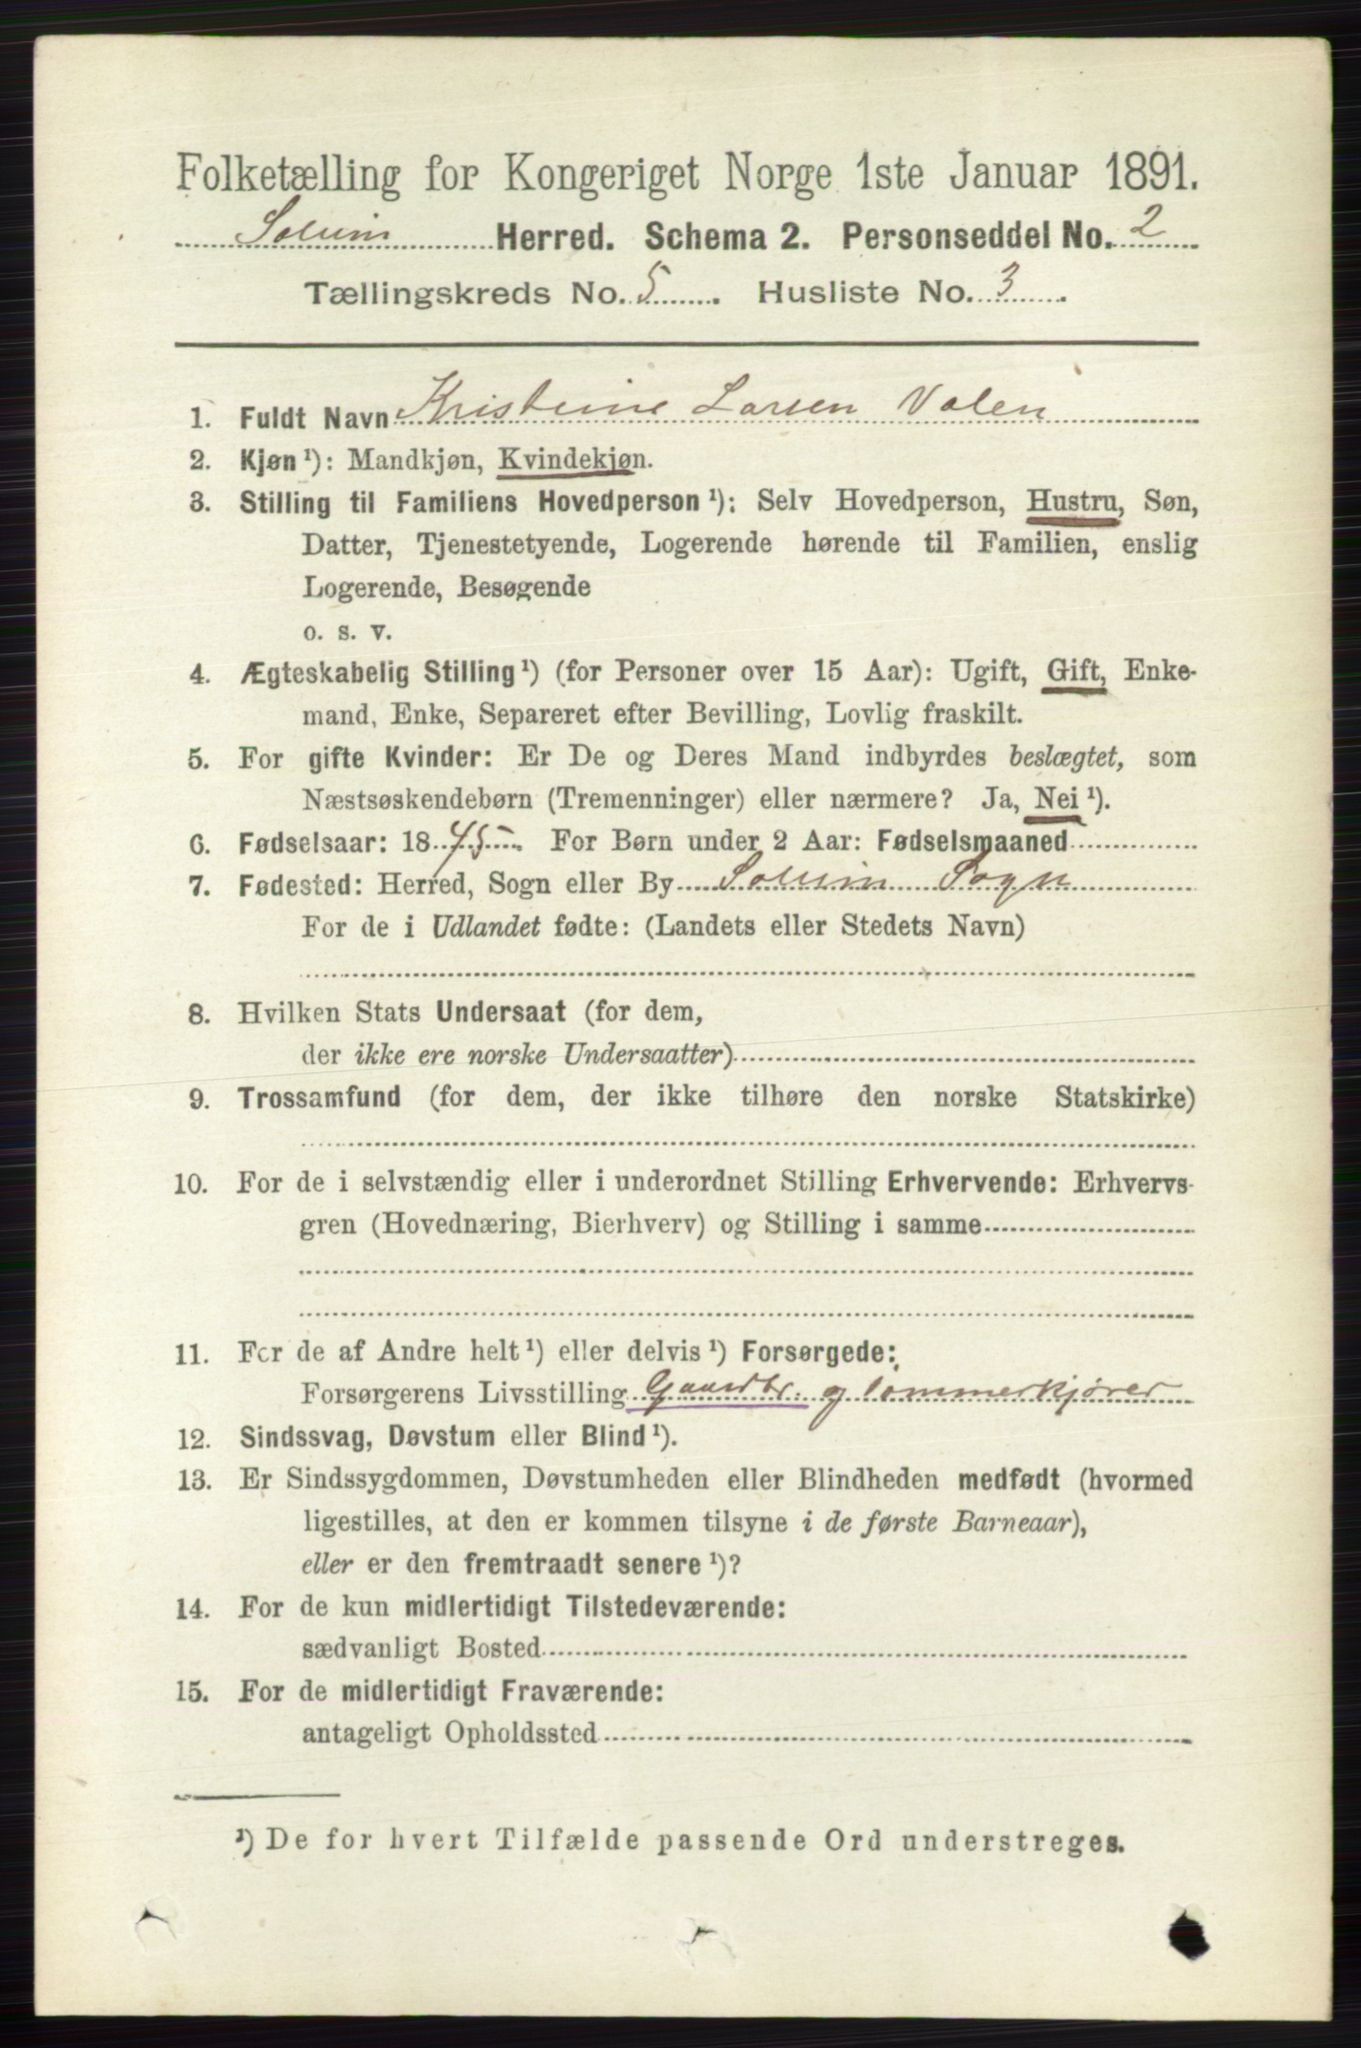 Folketælling for Kongeriget Norge 1ste Januar 1891.
Solum Herred. Schema 2. Personseddel No. 2
Tællingskreds No. 5. Husliste No. 3.
1. Fuldt Navn Kristine Larsen Valen
2. Kjøn ¹): Mandkjøn, Kvindekjøn.
3. Stilling til Familiens Hovedperson ¹): Selv Hovedperson, Hustru, Søn,
Datter, Tjenestetyende, Logerende hørende til Familien, enslig
Logerende, Besøgende
o. s. v.
4. Ægteskabelig Stilling ¹) (for Personer over 15 Aar): Ugift, Gift, Enke-
mand, Enke, Separeret efter Bevilling, Lovlig fraskilt.
5. For gifte Kvinder: Er De og Deres Mand indbyrdes beslægtet, som
Næstsøskendebørn (Tremenninger) eller nærmere? Ja, Nei ¹).
6. Fødselsaar: 1845. For Børn under 2 Aar: Fødselsmaaned
7. Fødested: Herred, Sogn eller By Solum Sogn
For de i Udlandet fødte: (Landets eller Stedets Navn)
8. Hvilken Stats Undersaat (for dem,
der ikke ere norske Undersaatter)
9. Trossamfund (for dem, der ikke tilhøre den norske Statskirke)
10. For de i selvstændig eller i underordnet Stilling Erhvervende: Erhvervs-
gren (Hovednæring, Bierhverv) og Stilling i samme
11. For de af Andre helt ¹) eller delvis ¹) Forsørgede:
Forsørgerens Livsstilling Gaardbr. og tømmerkjører
12. Sindssvag, Døvstum eller Blind ¹).
13. Er Sindssygdommen, Døvstumheden eller Blindheden medfødt (hvormed
ligestilles, at den er kommen tilsyne i de første Barneaar),
eller er den fremtraadt senere ¹)?
14. For de kun midlertidigt Tilstedeværende:
sædvanligt Bosted
15. For de midlertidigt Fraværende:
antageligt Opholdssted
¹) De for hvert Tilfælde passende Ord understreges.